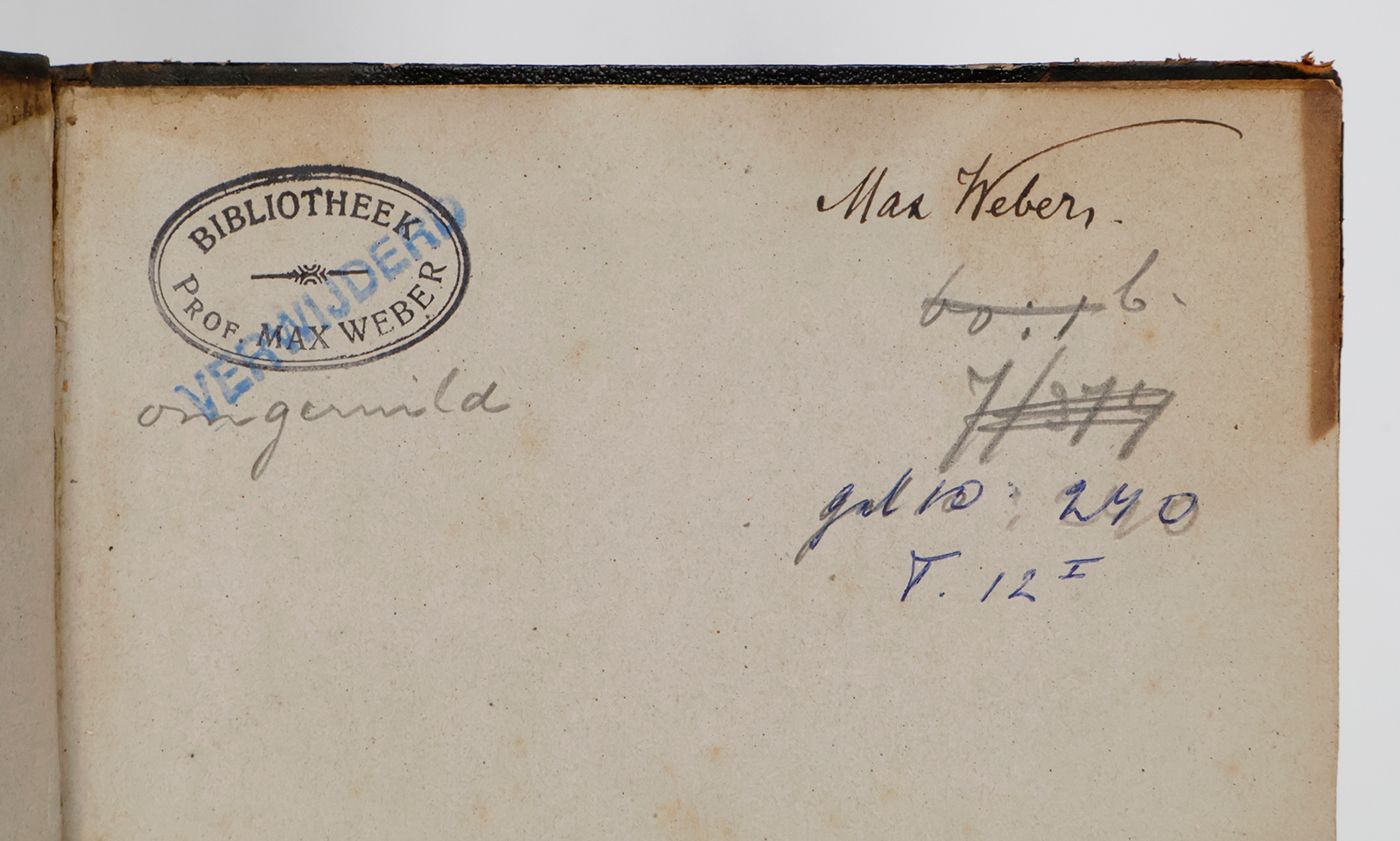 BIBLIOTHEEK
PROF. MAX WEBER
VERWIJDERD
omgeruild
Max Weber.
gal 10: 240
T. 12 I